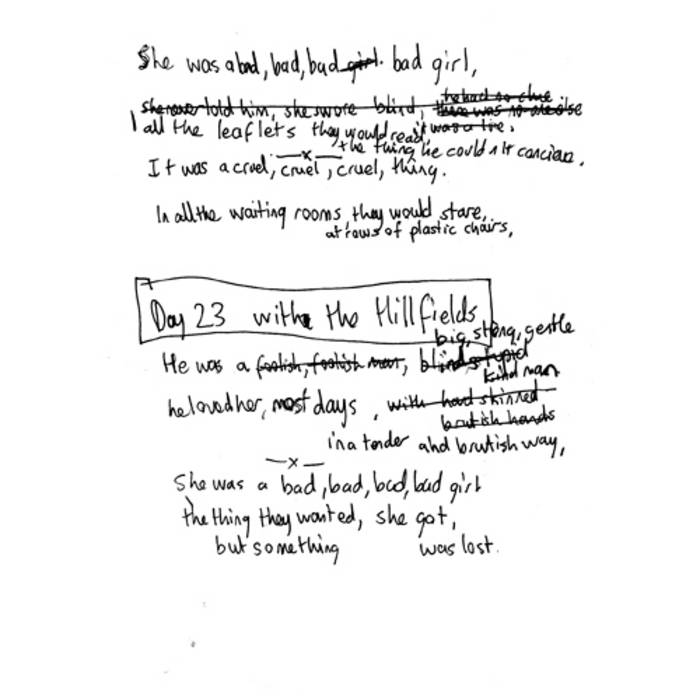 She was a bad, bad, bad girl. bad girl,
he had no clue
she never told him, she swore blind, there was no one else
it was a lie.
all the leaflets they would read,
the thing he could not
It was a cruel, cruel, cruel, thing.
In all the waiting rooms, they would stare,
at rows of plastic chairs,
Day 23 with the Hillfields
big, strong, gentle
He was a foolish, foolish man, blind, stupid
kind man
he loved her, most days, with hard skinned
brutish hands
in a tender and brutish way,
—x—
She was a bad, bad, bad, bad girl
the thing they wanted, she got,
but something was lost.